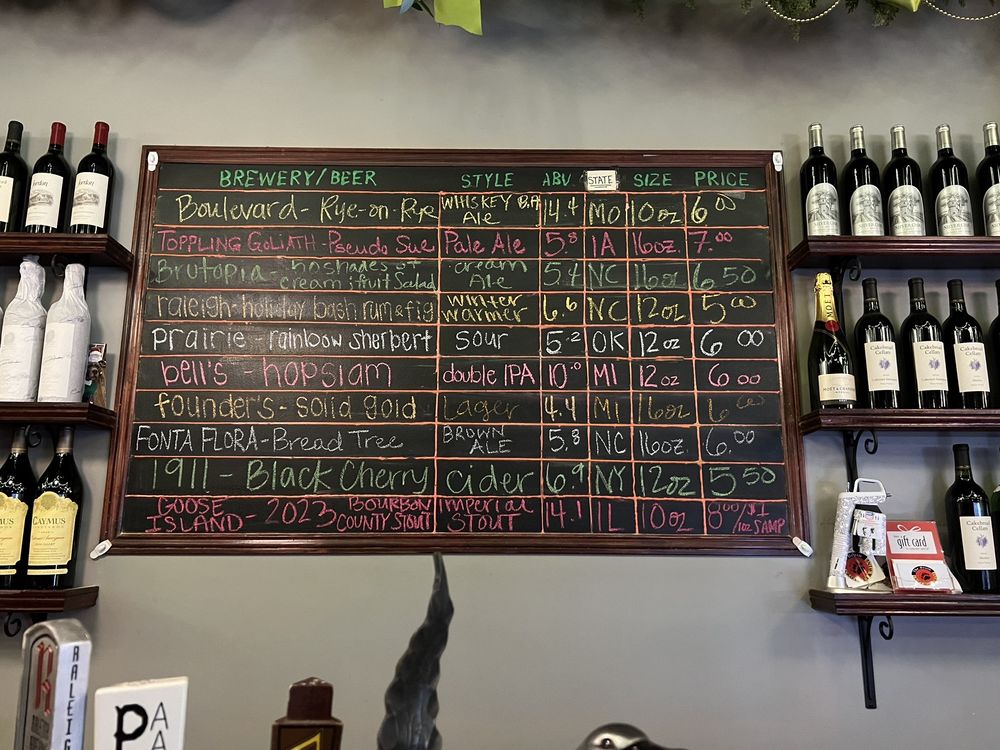 BREWERY/BEER STYLE ABV STATE SIZE PRICE
Boulevard - Rye-on-Rye WHISKEY B.A Ale 14.4 MO 10oz 6.00
TOPPLING GOLIATH - Pseudo Sue Pale Ale 5.8 IA 16oz. 7.00
Brutopia - 50 shades of cream: fruit Salad cream Ale 5.4 NC 16oz 6.50
raleigh - holiday bash rum & fig winter warmer 6.6 NC 12oz 5.00
prairie - rainbow sherbert sour 5.2 OK 12oz 6.00
bell's - hopslam double IPA 10.0 MI 12oz 6.00
founder's - solid gold Lager 4.4 MI 16oz 6.00
FONTA FLORA - Bread Tree BROWN ALE 5.8 NC 16oz. 6.00
1911 - Black Cherry cider 6.9 NY 12oz 5.50
GOOSE ISLAND - 2023 BOURBON COUNTY STOUT Imperial STOUT 14.1 IL 10oz 8.00/$1 1oz SAMP
CAYMUS
CAYMUS
MOËT
MOËT & CHANDON
Cakebread Cellars
Cakebread Cellars
Cakebread Cellars
Cakebread Cellars
gift card
RALEIG
R
PAA